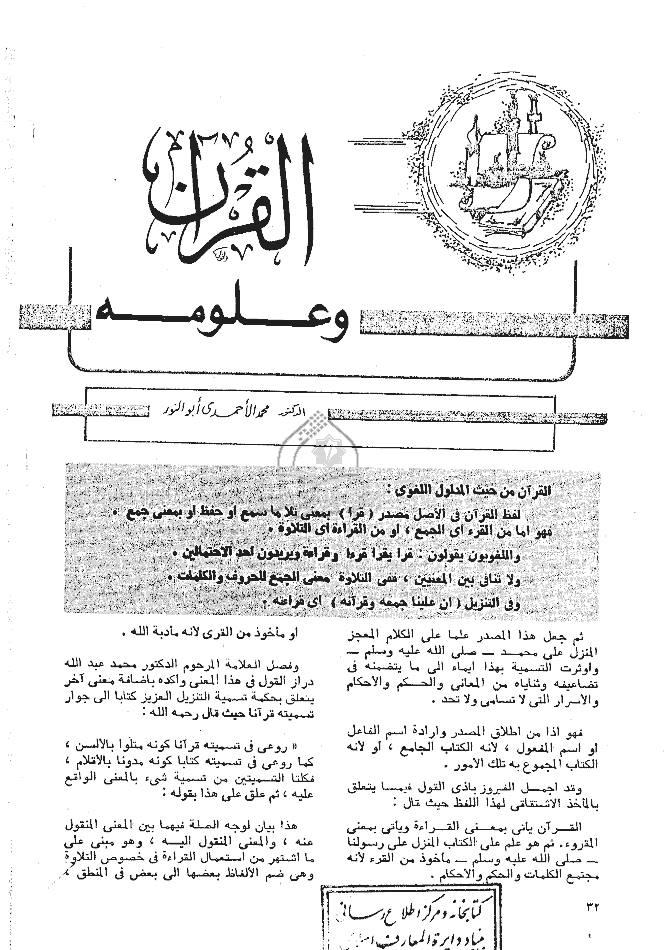 القرآن
وعلومه
الدكتور محمد الأحمدى أبو النور
القرآن من حيث المدلول اللغوى :
لفظ القرآن فى الأصل مصدر ( قرأ ) بمعنى تلا ما سمع او حفظ او بمعنى جمع .
فهو اما من القرء اى الجمع ، او من القراءة اى التلاوة .
واللغويون يقولون : قرأ يقرأ قرءا وقراءة ويريدون احد الاحتمالين .
ولا تنافى بين المعنيين ، ففى التلاوة معنى الجمع للحروف والكلمات .
وفى التنزيل ( ان علينا جمعه وقرآنه ) اى قراءته .
ثم جعل هذا المصدر علما على الكلام المعجز
المنزل على محمد ــ صلى الله عليه وسلم ــ
وأوثرت التسمية بهذا ايماء الى ما يتضمنه فى
تضاعيفه وثناياه من المعانى والحكم والأحكام
والأسرار التى لا تسامى ولا تحد .
فهو اذا من اطلاق المصدر وارادة اسم الفاعل
او اسم المفعول ، لأنه الكتاب الجامع ، او لأنه
الكتاب المجموع به تلك الأمور .
وقد اجمل الفيروز باذى القول فيمسا يتعلق
بالمأخذ الاشتقاقى لهذا اللفظ حيث قال :
القرآن يأتى بمعنى القراءة ويأتى بمعنى
المقروء. ثم هو علم على الكتاب المنزل على رسولنا
ــ صلى الله عليه وسلم ــ مأخوذ من القرء لأنه
مجتمع الكلمات والحكم والأحكام .
او مأخوذ من القرى لأنه مأدبة الله .
وفصل العلامة المرحوم الدكتور محمد عبد الله
دراز القول فى هذا المعنى وأكده باضافة معنى آخر
يتعلق بحكمة تسمية التنزيل العزيز كتابا الى جوار
تسميته قرآنا حيث قال رحمه الله :
« روعى فى تسميته قرآنا كونه متلوا بالألسن ،
كما روعى فى تسميته كتابا كونه مدونا بالأقلام ،
فكلتا التسميتين من تسمية شىء بالمعنى الواقع
عليه ، ثم علق على هذا بقوله :
هذا بيان لوجه الصلة فيهما بين المعنى المنقول
عنه ، والمعنى المنقول اليه ، وهو مبنى على
ما اشتهر من استعمال القراءة فى خصوص التلاوة
وهى ضم الألفاظ بعضها الى بعض فى المنطق ،
٣٢
كتابخانه ومركز اطلاع رسانى
بنياد دايرة المعارف